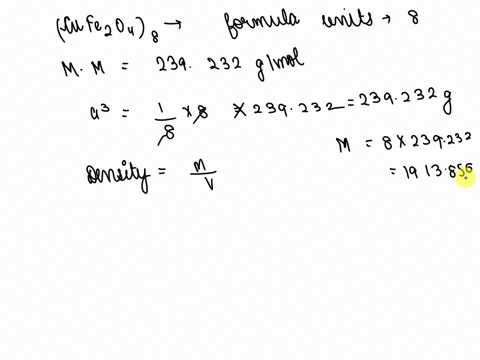 (CuFe2O4)8 → formula units → 8
M.M = 239.232 g/mol
a³ = 1/8 × 8 × 239.232 = 239.232 g
M = 8 × 239.232
= 1913.856
Density = M/V